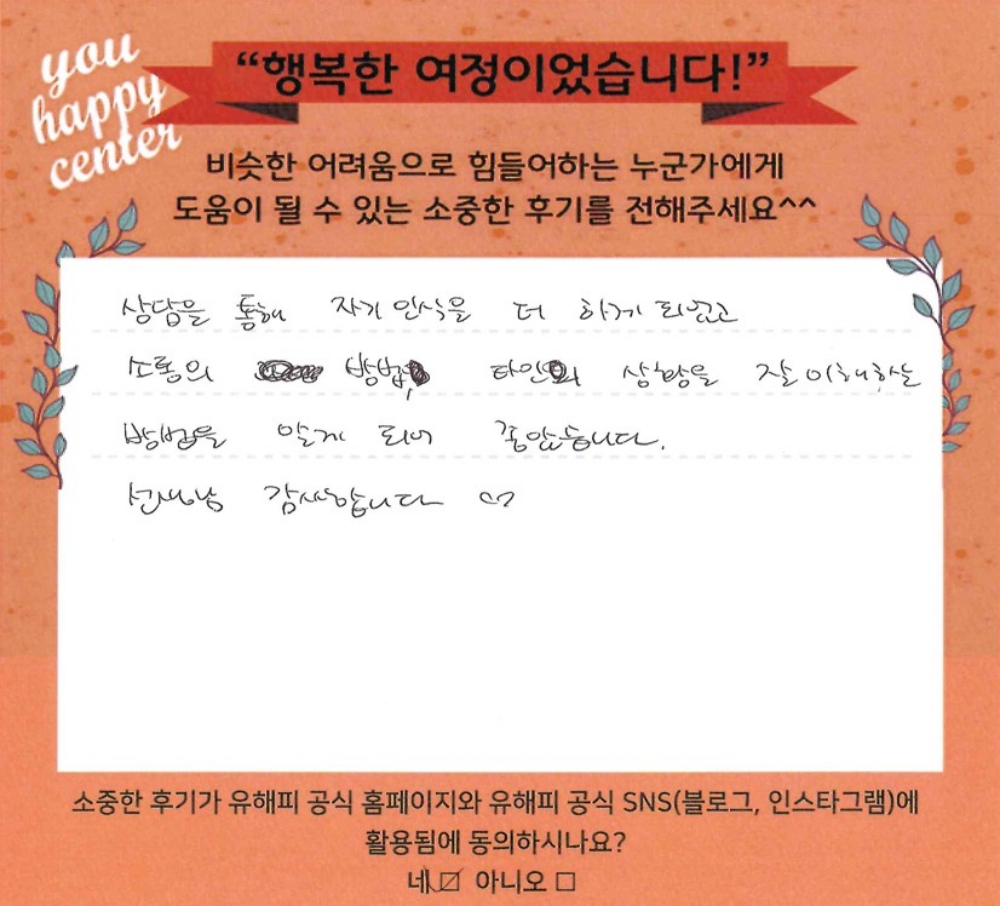 you
happy
center
“행복한 여정이었습니다!”
비슷한 어려움으로 힘들어하는 누군가에게
도움이 될 수 있는 소중한 후기를 전해주세요^^
상담을 통해 자기 인식을 더 하게 되었고
소통의 방법, 타인의 상황을 잘 이해하는
방법을 알게 되어 좋았습니다.
선생님 감사합니다 ♡
소중한 후기가 유해피 공식 홈페이지와 유해피 공식 SNS(블로그, 인스타그램)에
활용됨에 동의하시나요?
네 ☑ 아니오 □